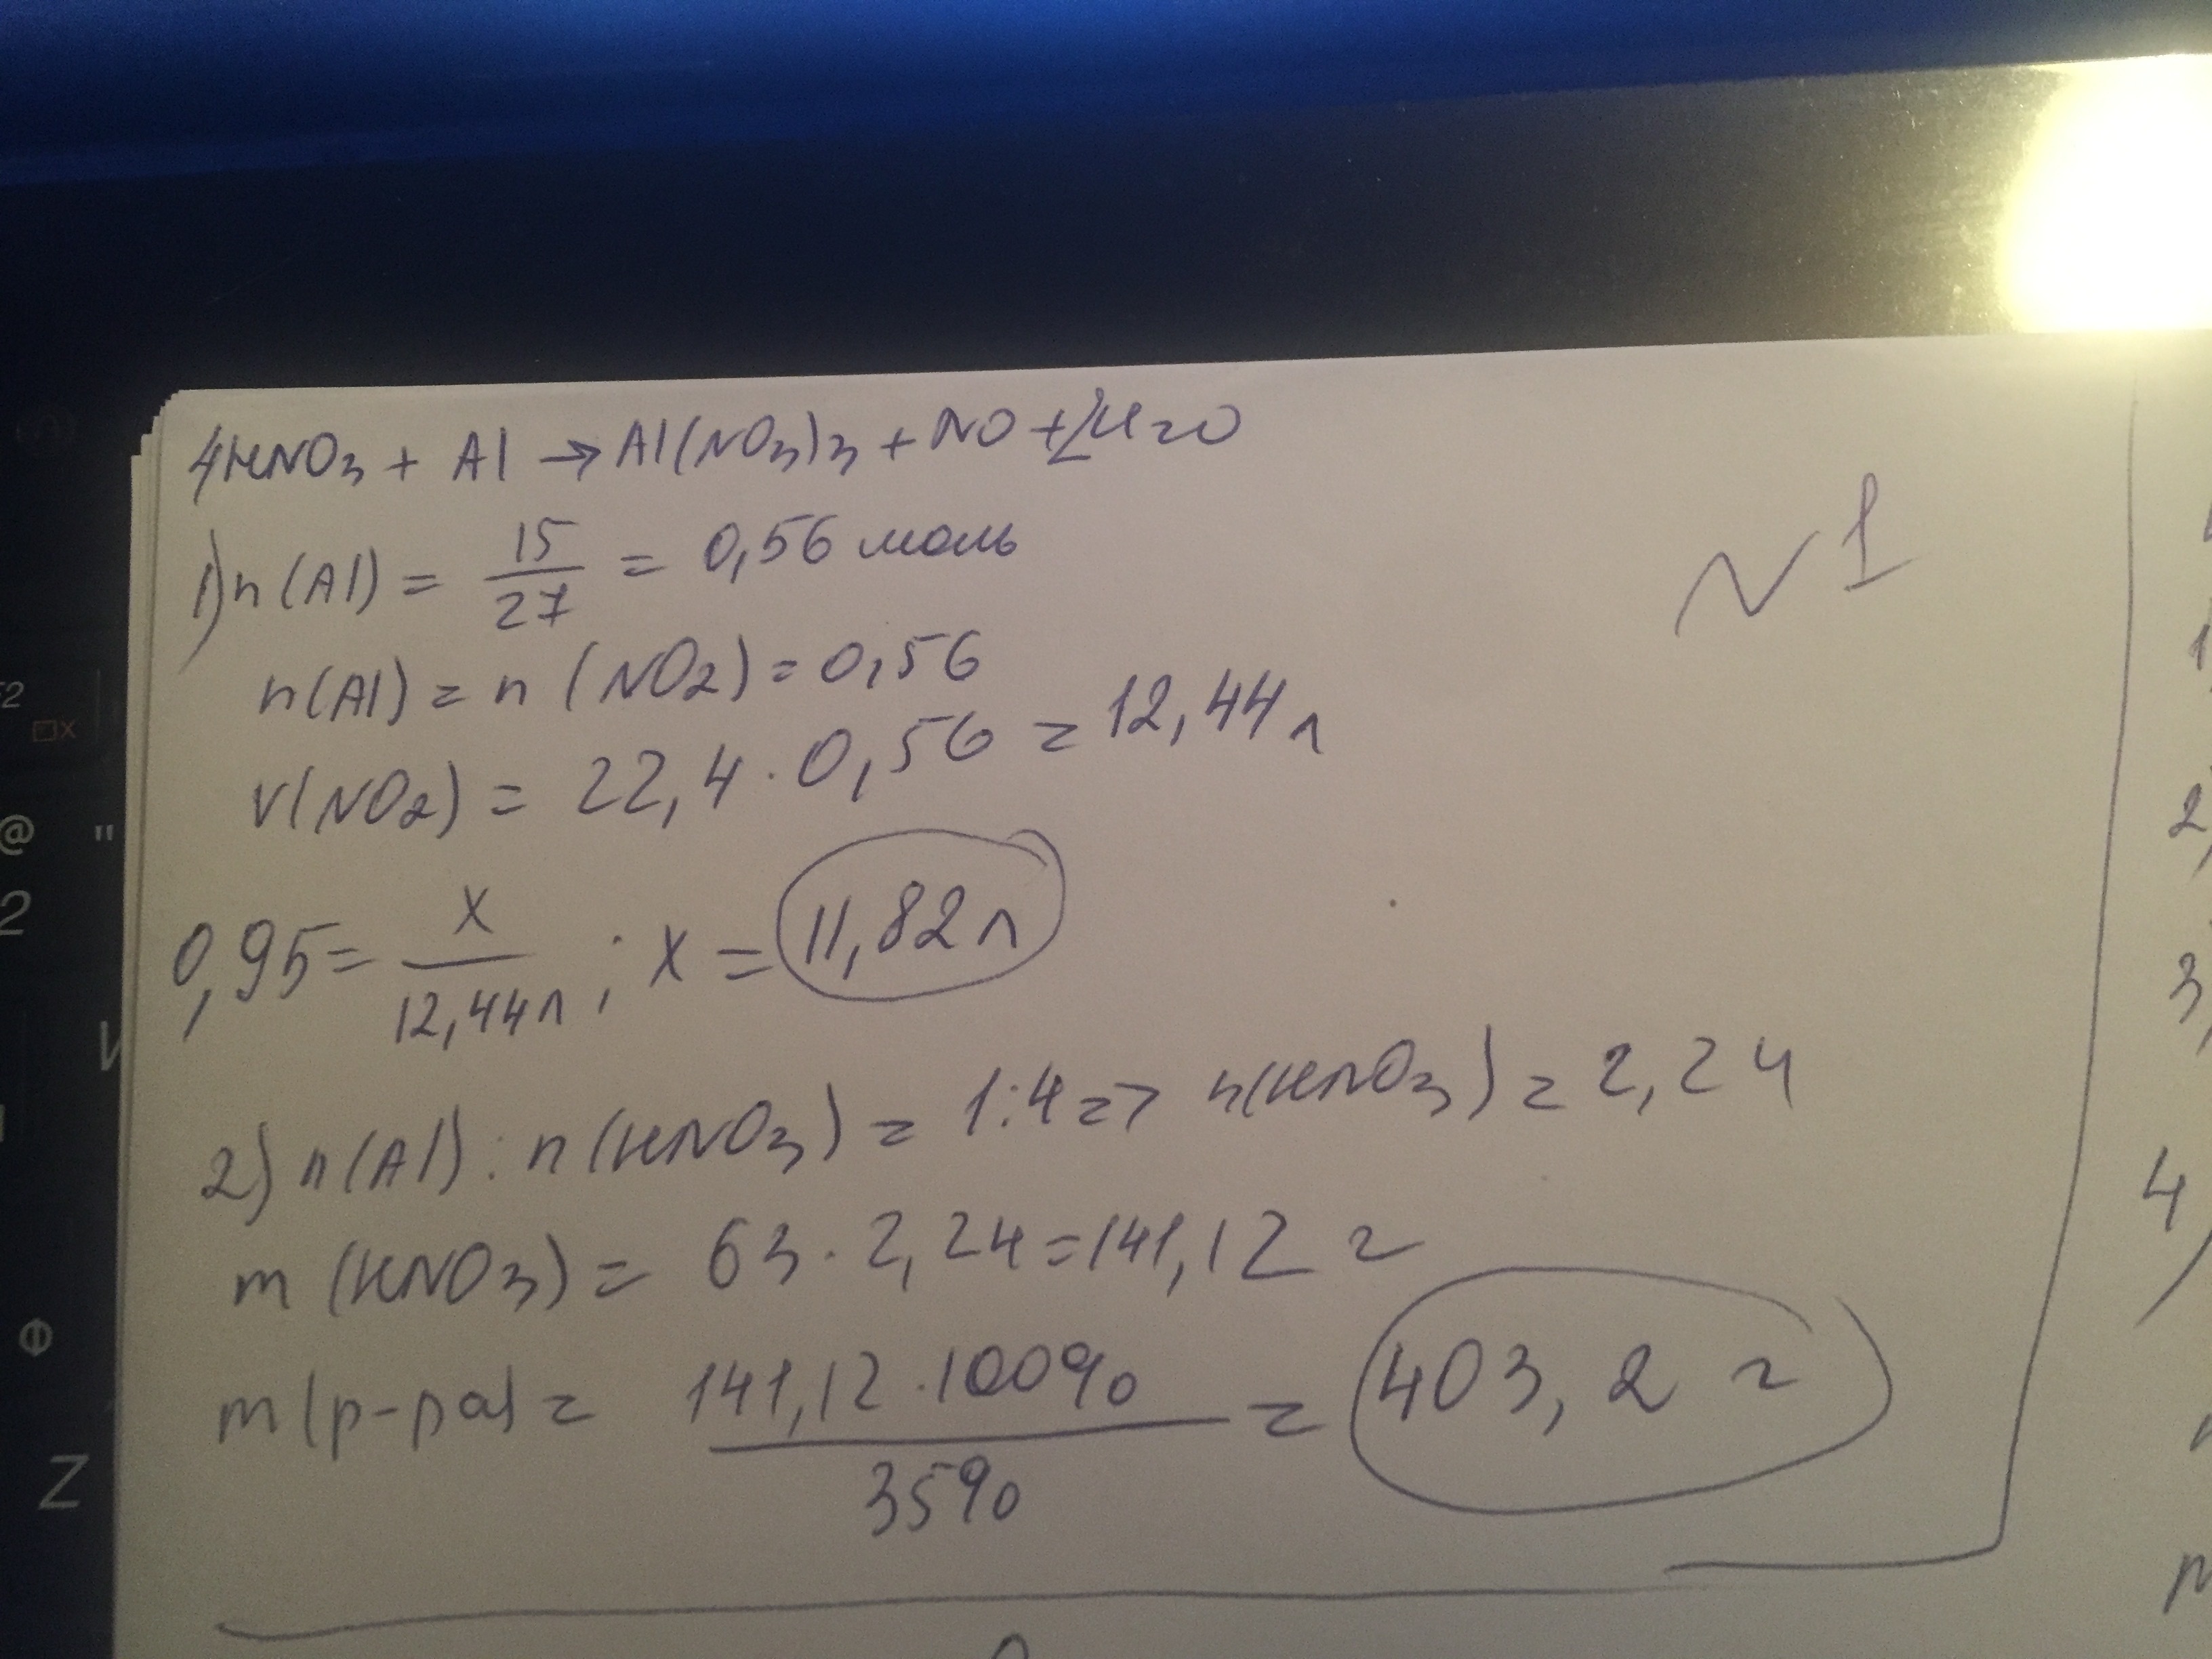 4HNO3 + Al → Al(NO3)3 + NO + 2H2O
N1
1) n(Al) = 15/27 = 0,56 моль
n(Al) = n(NO2) = 0,56
V(NO2) = 22,4 · 0,56 = 12,44 л
0,95 = x/12,44л ; x = 11,82 л
2) n(Al) : n(HNO3) = 1:4 => n(HNO3) = 2,24
m(HNO3) = 63 · 2,24 = 141,12 г
m(р-ра) = 141,12 · 100% / 35% = 403,2 г
1
2)
3)
4)
F2
@ "
2
И
Ф
Z